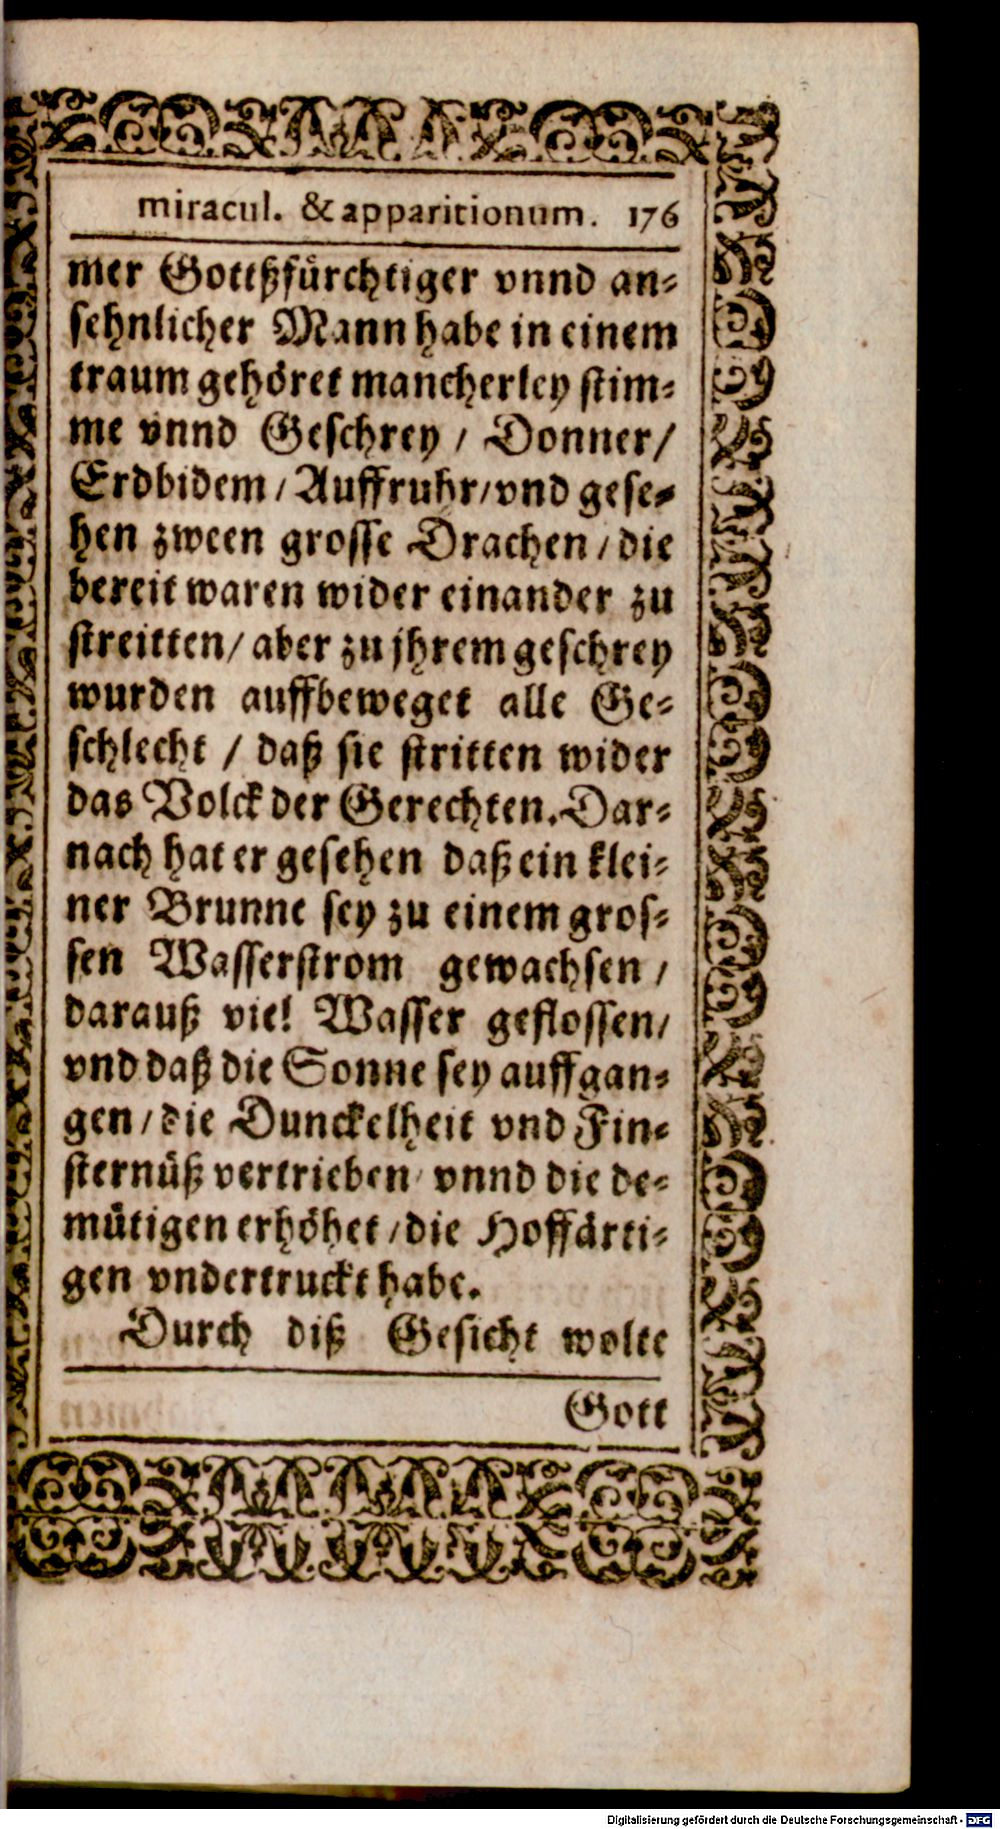 miracul. & apparitionum. 176
mer Gottßfürchtiger vnnd an-
sehnlicher Mann habe in einem
traum gehöret mancherley stim-
me vnnd Geschrey / Donner /
Erdbidem / Auffruhr / vnd gese-
hen zween grosse Drachen / die
bereit waren wider einander zu
streitten / aber zu jhrem geschrey
wurden auffbeweget alle Ge-
schlecht / daß sie stritten wider
das Volck der Gerechten. Dar-
nach hat er gesehen daß ein klei-
ner Brunne sey zu einem gros-
sen Wasserstrom gewachsen /
darauß viel Wasser geflossen /
vnd daß die Sonne sey auffgan-
gen / die Dunckelheit vnd Fin-
sternüß vertrieben / vnnd die de-
mütigen erhöhet / die Hoffärti-
gen vndertruckt habe.
Durch diß Gesicht wolte
Gott
Digitalisierung gefördert durch die Deutsche Forschungsgemeinschaft - DFG